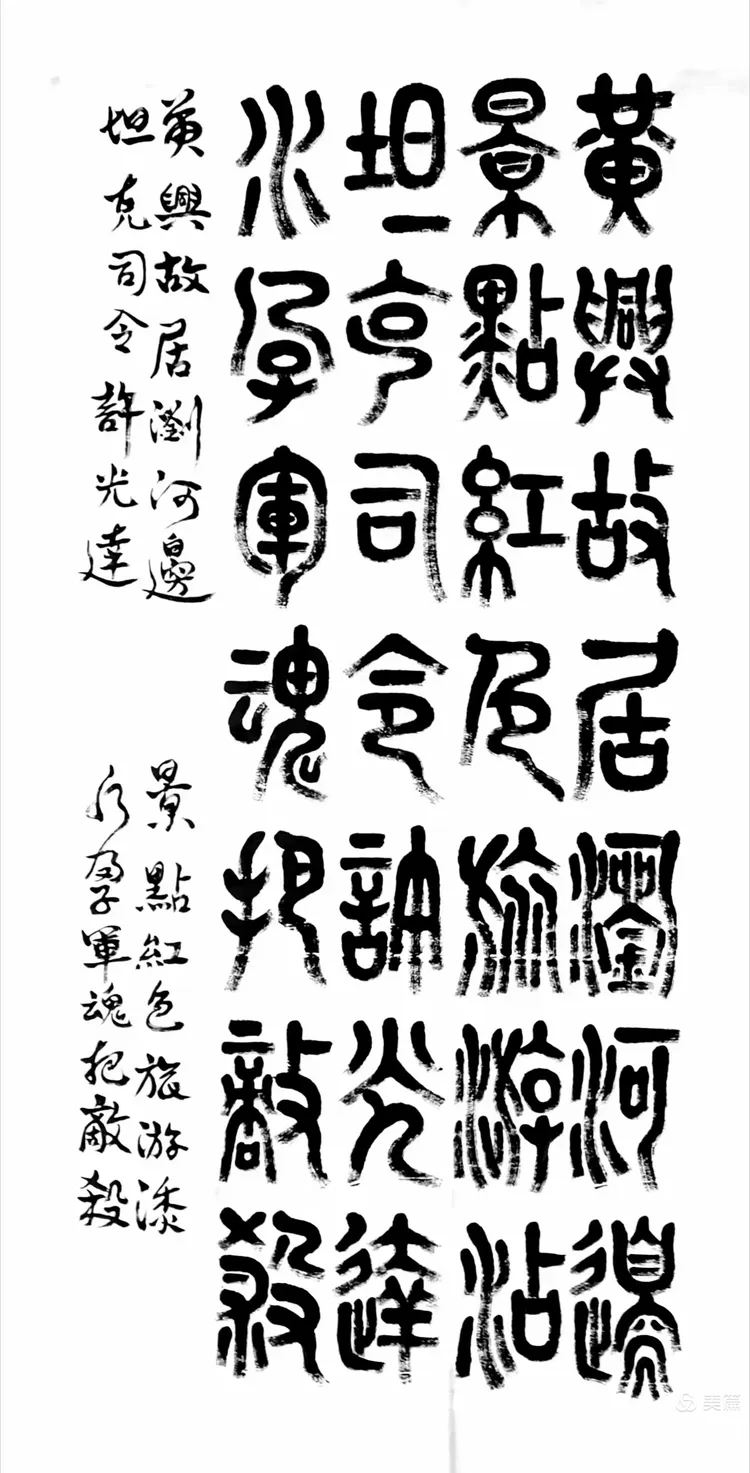 黃興故居瀏河邊
景點紅色旅游沾
坦克司令許光達
水孕軍魂把敵殺
黃興故居瀏河邊 景點紅色旅游添
坦克司令許光達 水孕軍魂把敵殺
美篇